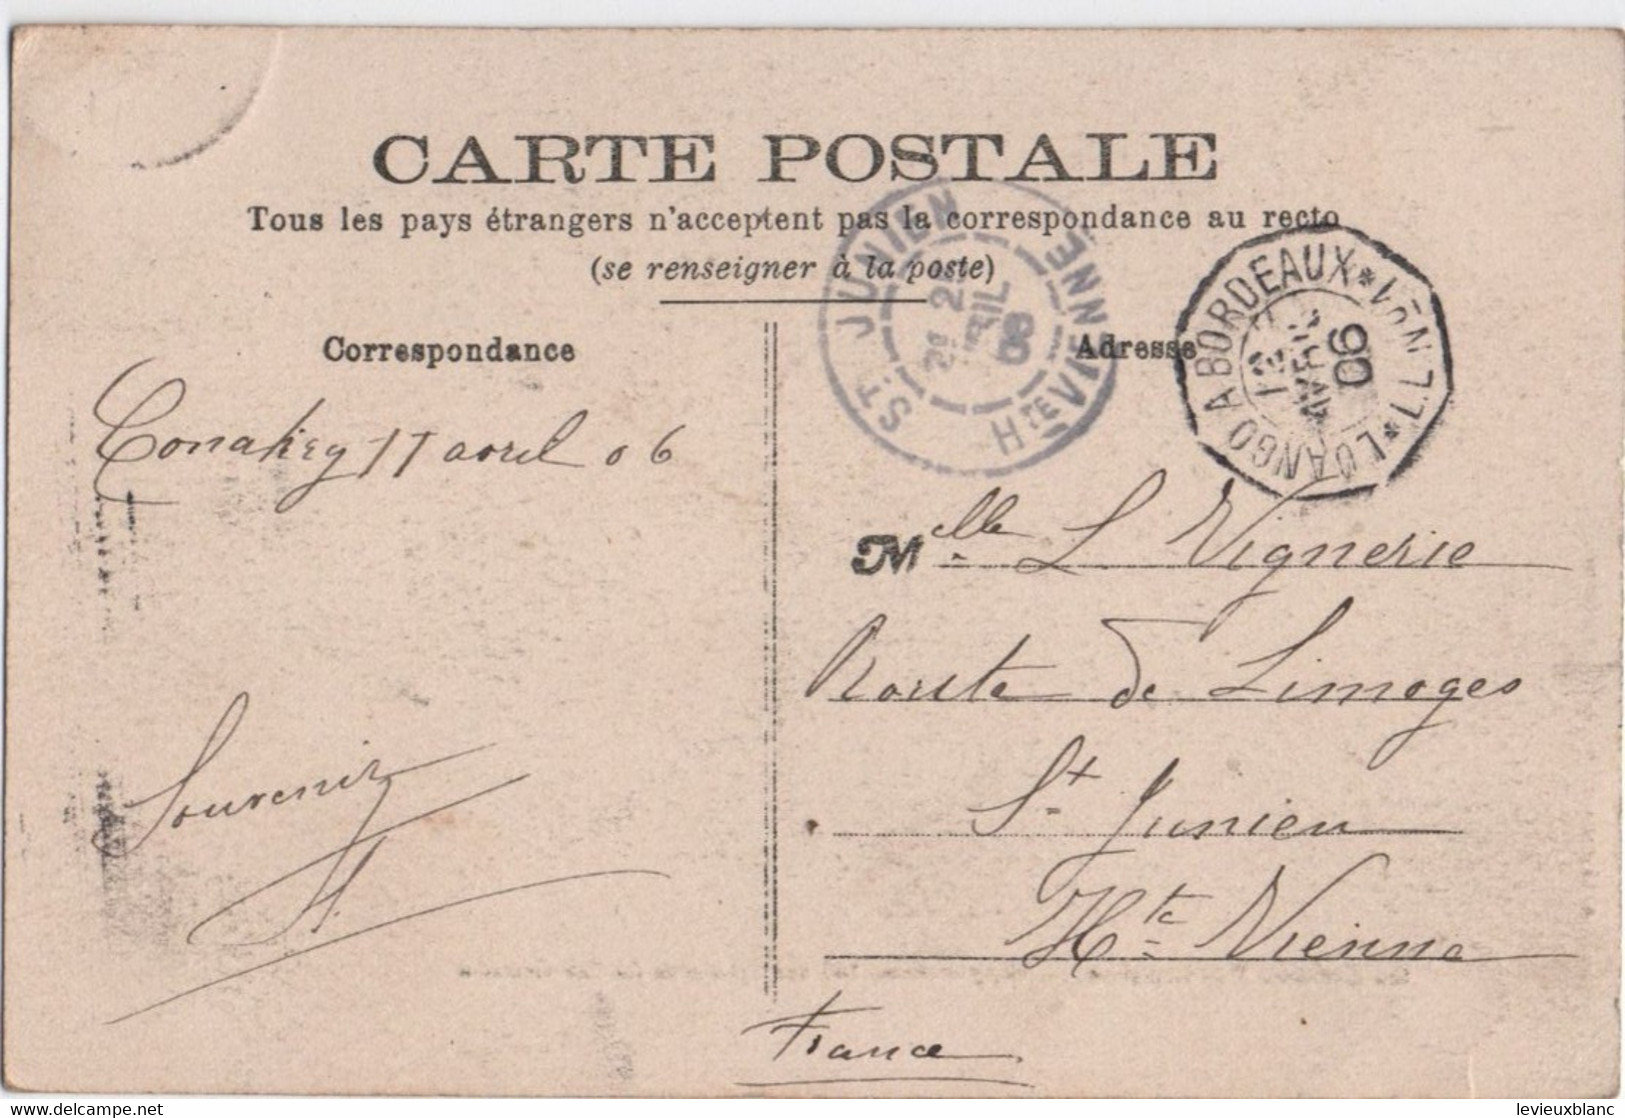 CARTE POSTALE
Tous les pays étrangers n'acceptent pas la correspondance au recto
(se renseigner à la poste)
Correspondance
Adresse
ST JUNIEN
HTE VIENNE
AVRIL
06
LOANGO A BORDEAUX * L.L. *
AVRIL
06
Conakry 17 avril 06
Melle L. Vignerie
Route de Limoges
St Junien
Hte Vienne
France
Souvenir
levieuxblanc
delcampe.net